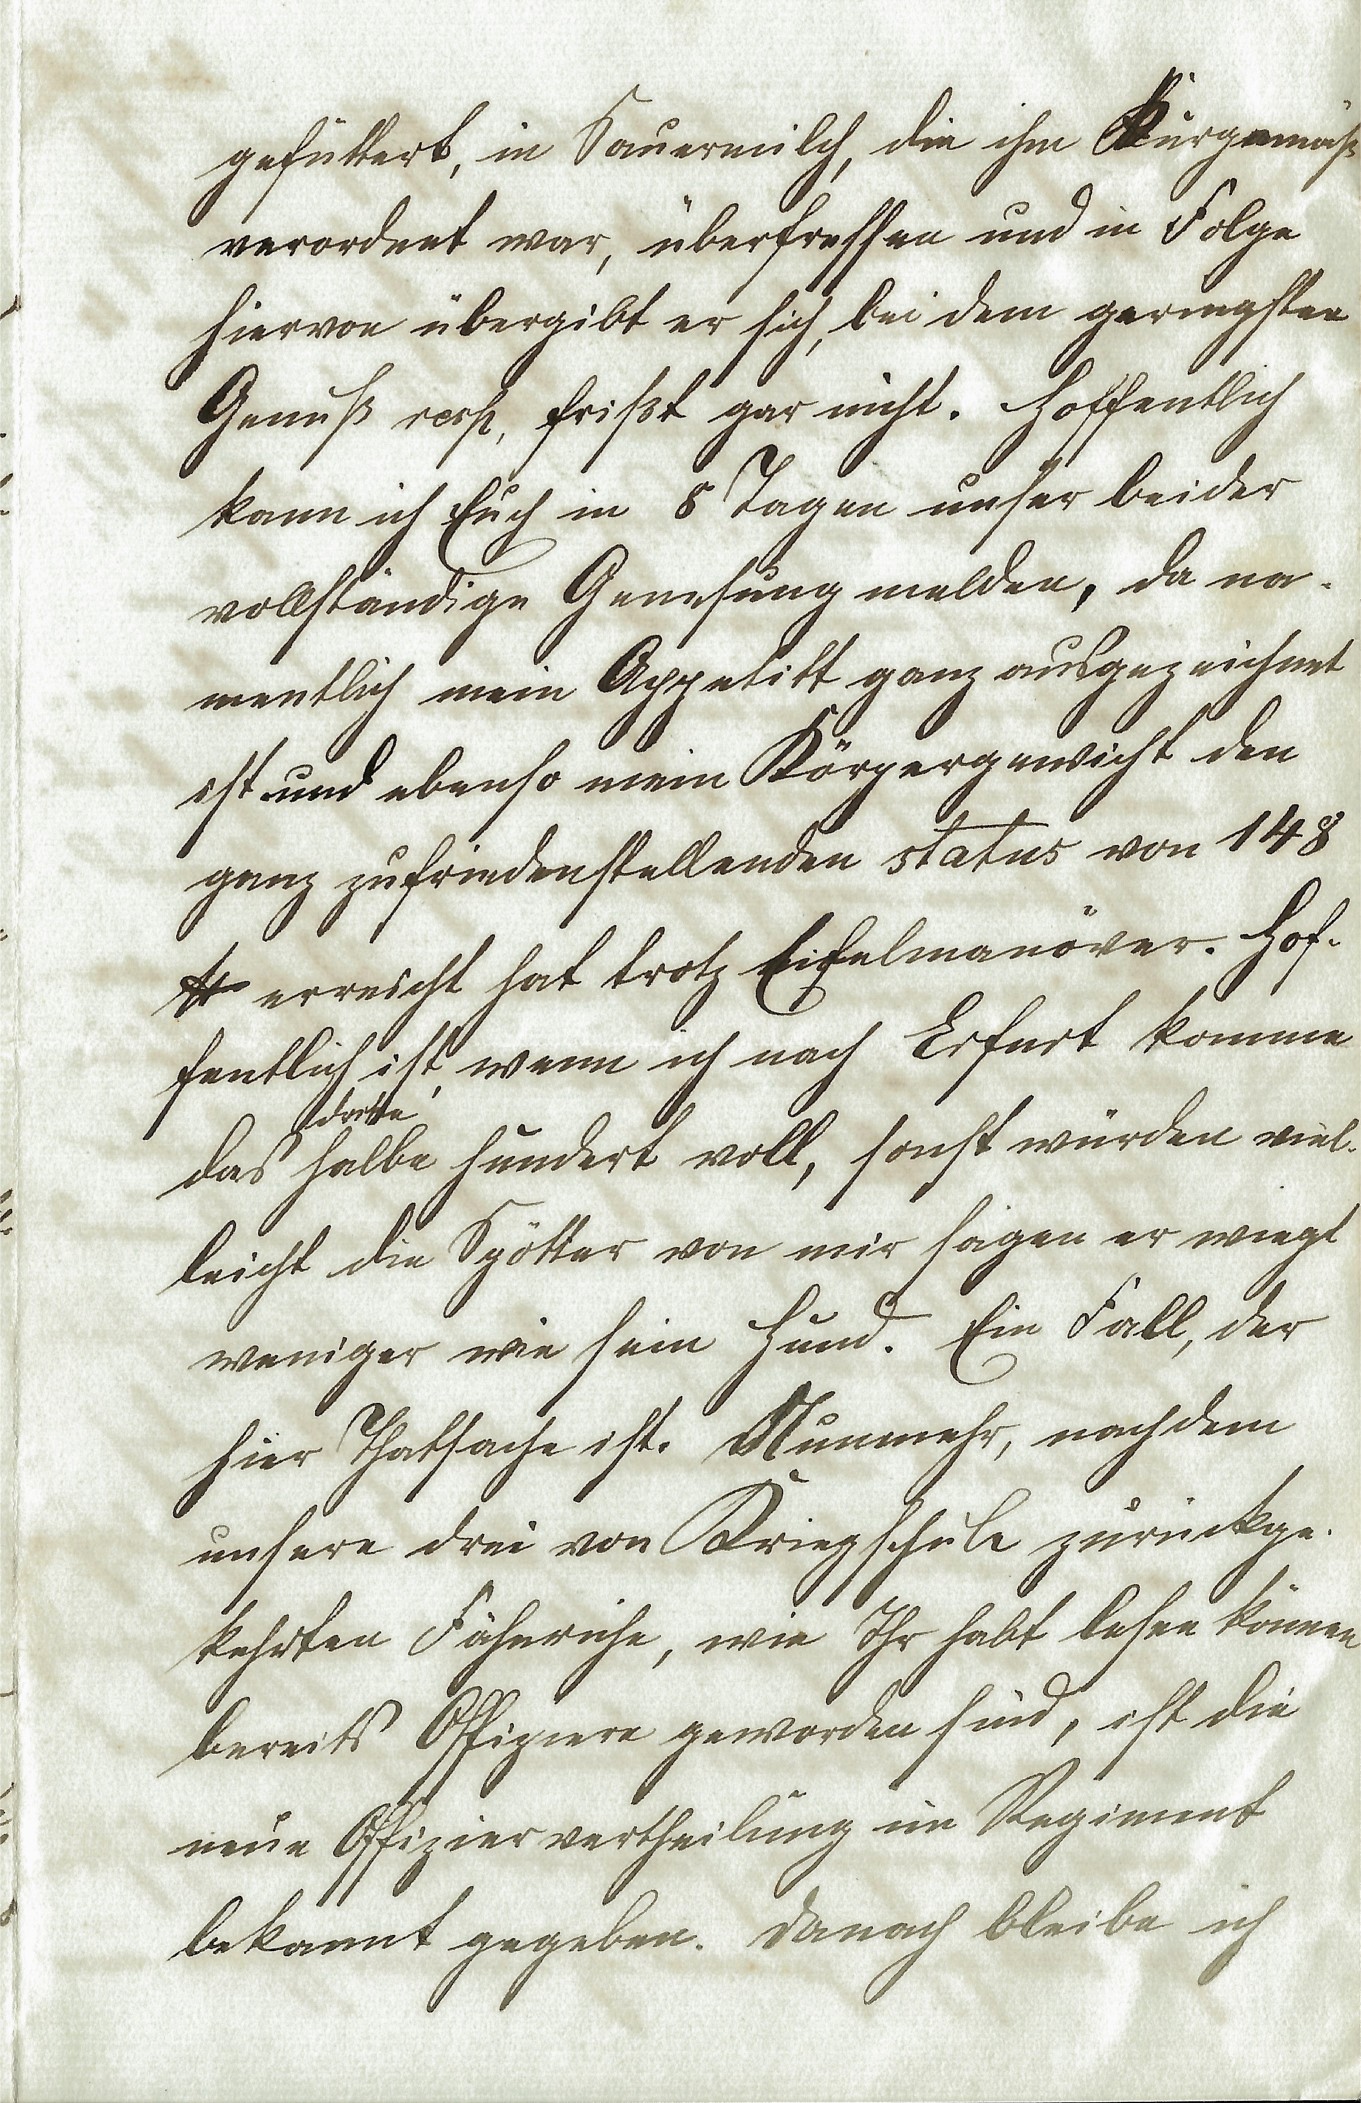 gefüttert, in Sauermilch, die ihm Kurgemäß
verordnet war, überfressen und in Folge
hiervon übergibt er sich, bei dem geringsten
Genuß resp. frißt gar nicht. Hoffentlich
kann ich Euch in 8 Tagen unser beider
vollständige Genesung melden, da na-
mentlich mein Appetitt ganz ausgezeichnet
ist und ebenso mein Körpergewicht den
ganz zufriedenstellenden status von 148
℔ erreicht hat trotz Eifelmanöver. Hof-
fentlich ist, wenn ich nach Erfurt komme
dritte
das halbe Hundert voll, sonst würden viel-
leicht die Spötter von mir sagen er wiegt
weniger wie sein Hund. Ein Fall, der
hier Thatsache ist. Nunmehr, nachdem
unsere drei von Kriegschule zurückge-
kehrten Fähnriche, wie Ihr habt lesen können
bereits Offiziere geworden sind, ist die
neue Offiziervertheilung im Regiment
bekannt gegeben. Danach bleibe ich